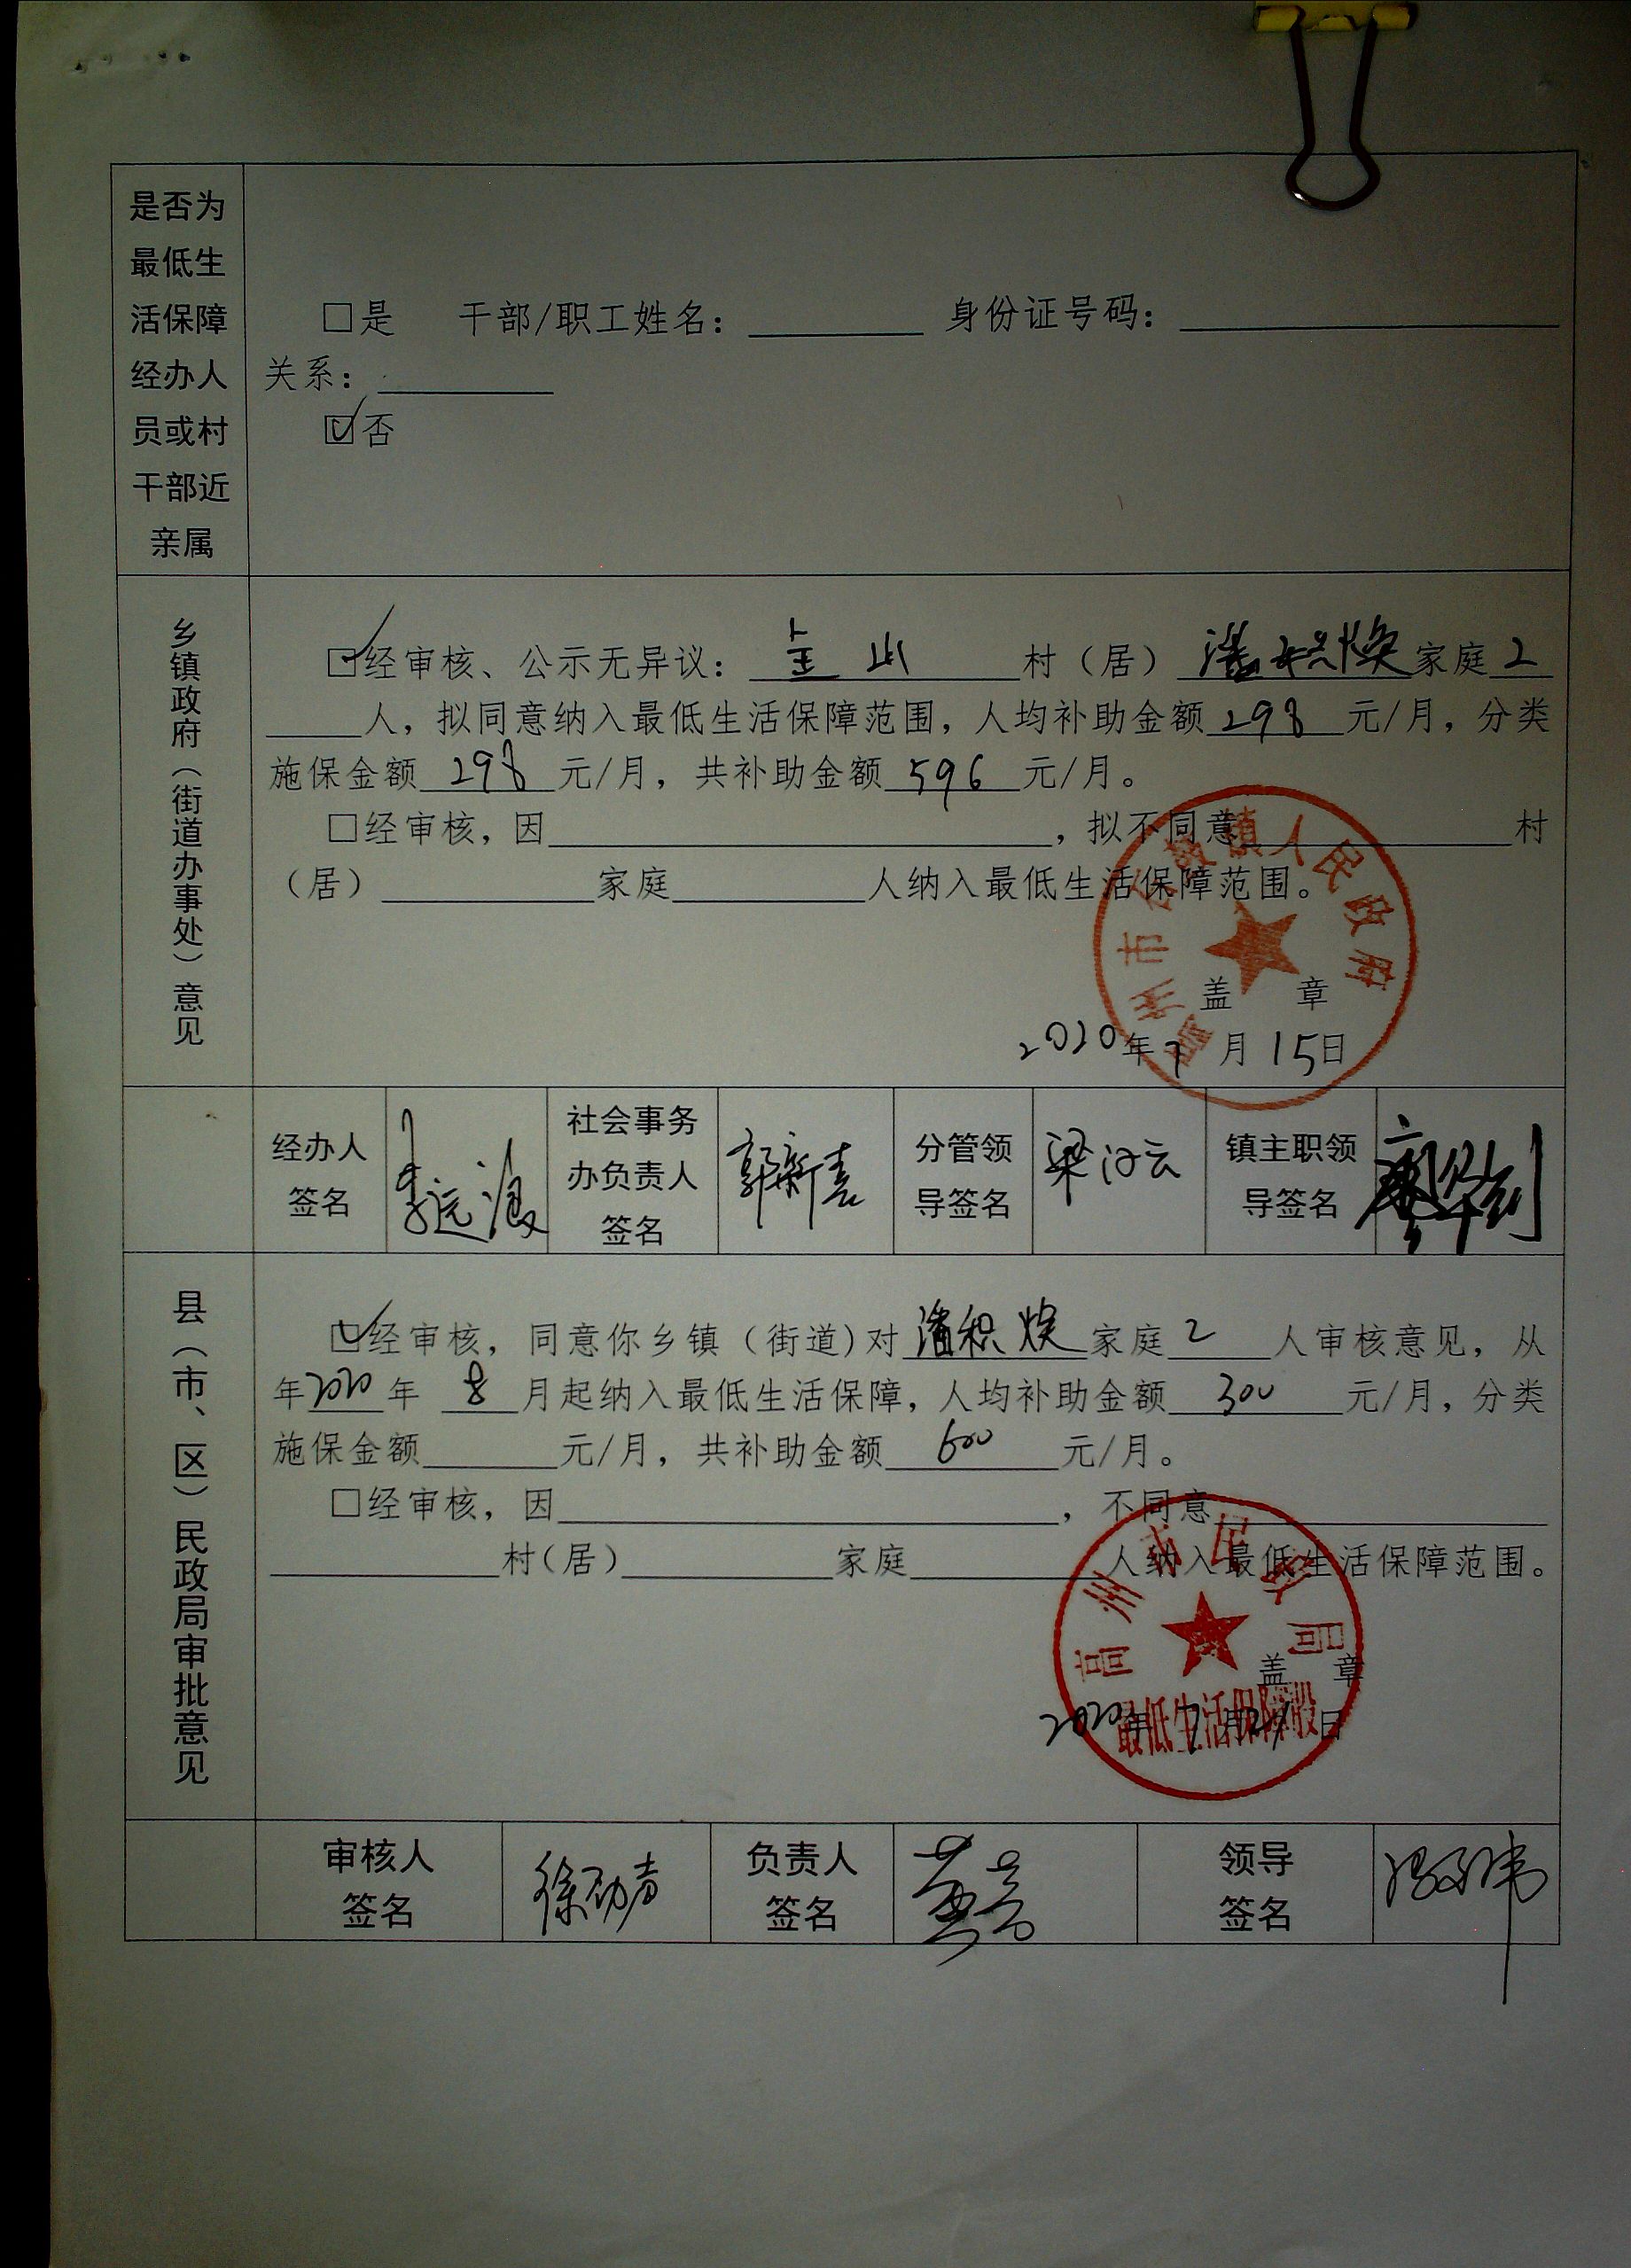 是否为
最低生
活保障
经办人
员或村
干部近
亲属
□是 干部/职工姓名：________ 身份证号码：________
关系：________
☑否
乡镇政府（街道办事处）意见
☑经审核、公示无异议： 村（居） 潘积焕家庭2
人，拟同意纳入最低生活保障范围，人均补助金额298元/月，分类
施保金额298元/月，共补助金额596元/月。
□经审核，因________，拟不同意________村
（居）________家庭________人纳入最低生活保障范围。
镇人民政府
盖 章
2020年7月15日
经办人
签名
社会事务
办负责人
签名
郭新喜
分管领
导签名
梁汉云
镇主职领
导签名
县（市、区）民政局审批意见
☑经审核，同意你乡镇（街道)对潘积焕家庭2人审核意见，从
年2020年 8月起纳入最低生活保障，人均补助金额300元/月，分类
施保金额____元/月，共补助金额600元/月。
□经审核，因________，不同意________
________村(居）________家庭________人纳入最低生活保障范围。
高州市民政局
盖 章
最低生活保障股
2020年7月 日
审核人
签名
负责人
签名
领导
签名